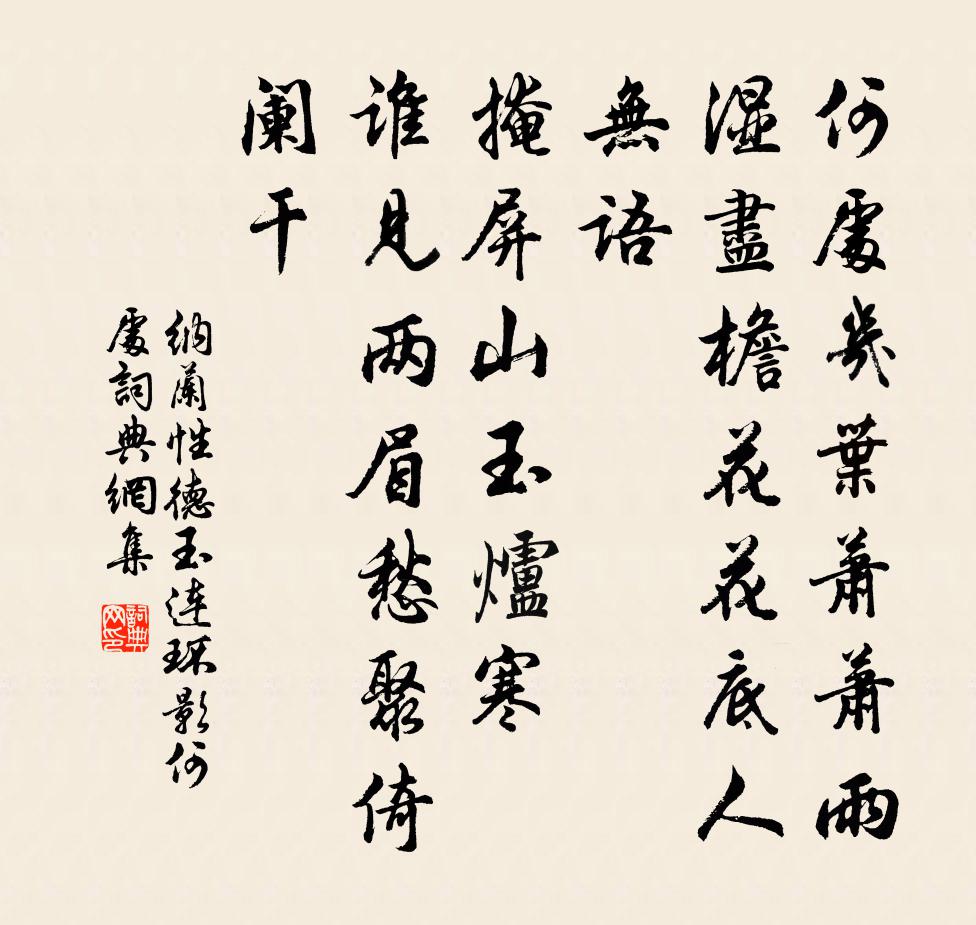 何處幾葉蕭蕭雨
濕盡檐花花底人
無語
掩屏山玉爐寒
谁見两眉愁聚倚
阑干
纳蘭性德玉连环影何
處詞典網集
詞典
网印